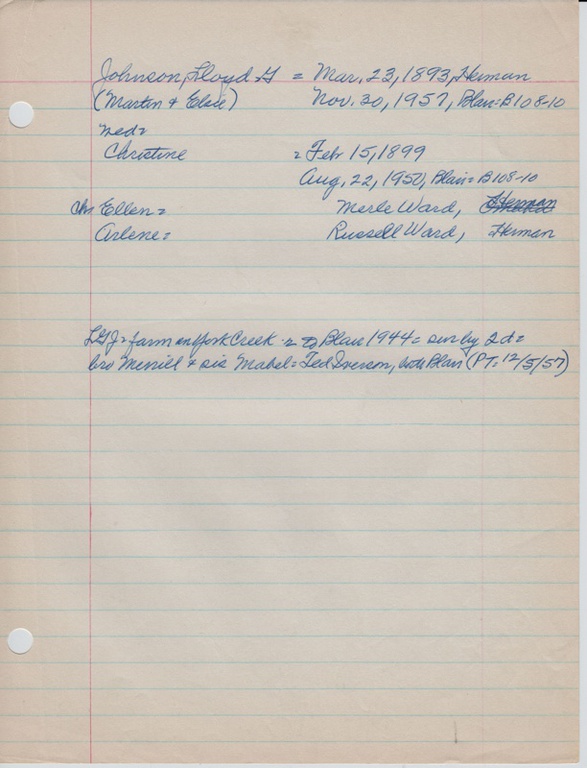 Johnson, Lloyd G = Mar. 23, 1893, Herman
(Martin & Elsie) Nov. 30, 1957, Blair = B108-10
med =
Christine = Feb 15, 1899
Aug. 22, 1950, Blair = B108-10
Ch Ellen = Merle Ward, Herman
Arlene = Russell Ward, Herman
LGJ = farm on York Creek = to Blair 1944 = sur by 2 d =
bro Merrill & sis Mabel = Ted Iverson, both Blair (PT = 12/5/57)